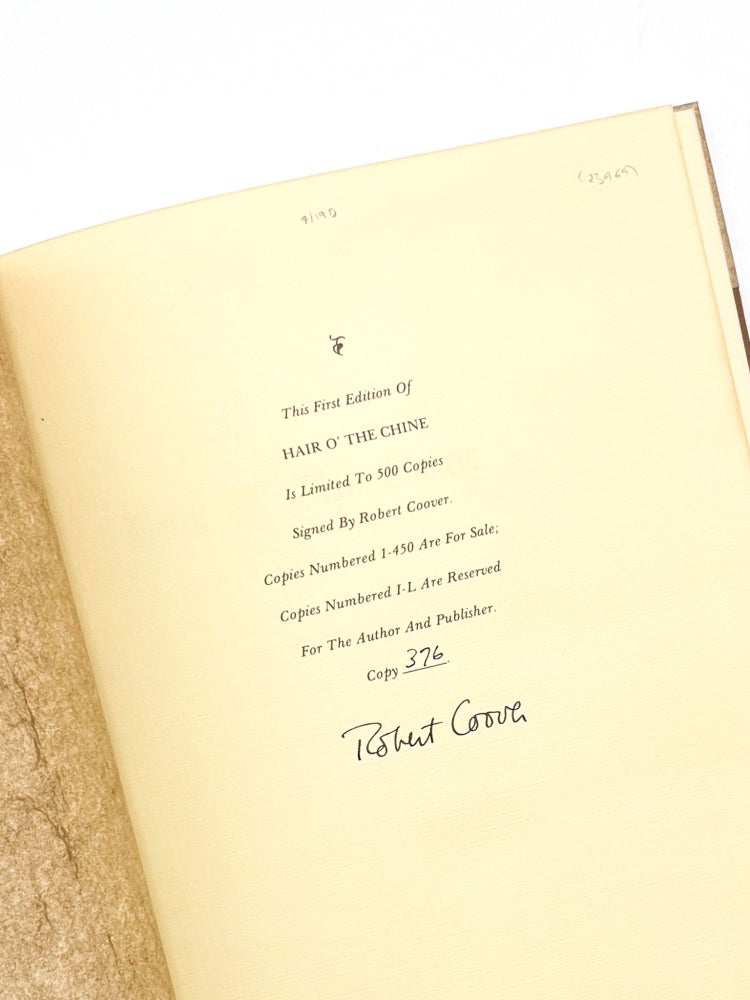 (23969)
4/190
This First Edition Of
HAIR O' THE CHINE
Is Limited To 500 Copies
Signed By Robert Coover.
Copies Numbered 1-450 Are For Sale;
Copies Numbered I-L Are Reserved
For The Author And Publisher.
Copy 376.
Robert Coover